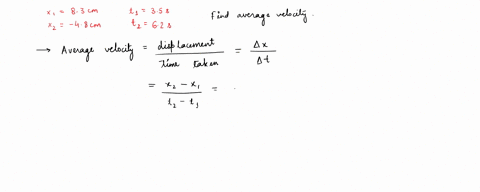 x₁ = 8.3 cm t₁ = 3.5 s Find average velocity.
x₂ = -4.8 cm t₂ = 6.2 s
→ Average velocity = displacement / Time taken = Δx / Δt
= x₂ - x₁ / t₂ - t₁ =